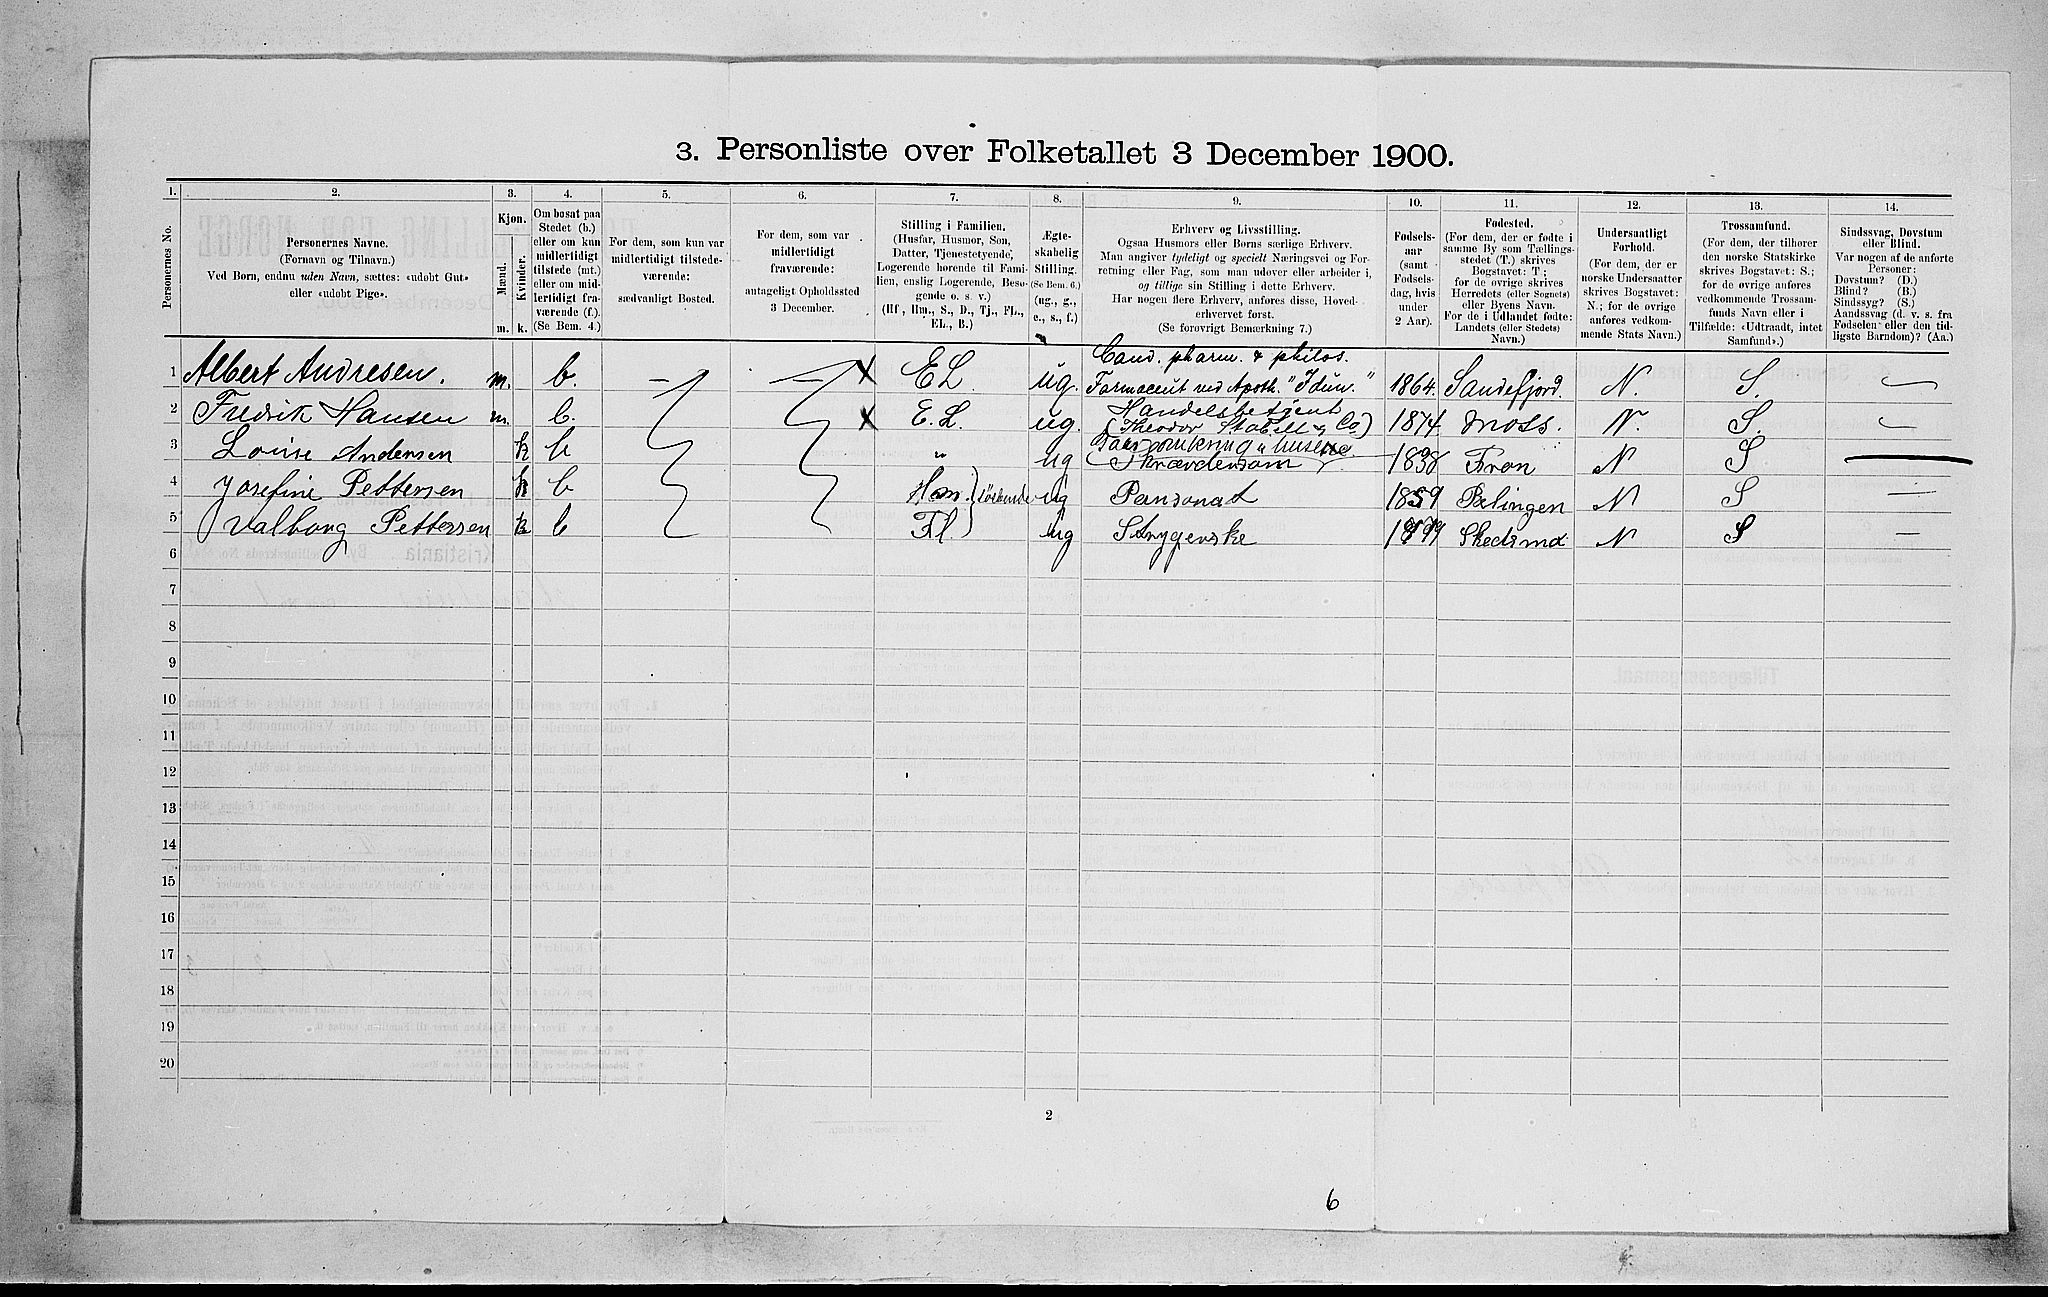 3. Personliste over Folketallet 3 December 1900.
1. 2. 3. 4. 5. 6. 7. 8. 9. 10. 11. 12. 13. 14.
Personernes No.
Personernes Navne.
(Fornavn og Tilnavn.)
Ved Børn, endnu uden Navn, sættes: «udøbt Gut»
eller «udøbt Pige».
Kjøn.
Mænd.
Kvinder.
m. k.
Om bosat paa
Stedet (b.)
eller om kun
midlertidigt
tilstede (mt.)
eller om mid-
lertidigt fra-
værende (f.).
(Se Bem. 4.)
For dem, som kun var
midlertidigt tilstede-
værende:
sædvanligt Bosted.
For dem, som var
midlertidigt
fraværende:
antageligt Opholdssted
3 December.
Stilling i Familien.
(Husfar, Husmor, Søn,
Datter, Tjenestetyende,
Logerende hørende til Fami-
lien, enslig Logerende, Besø-
gende o. s. v.)
(Hf., Hm., S., D., Tj., FL.,
EL., B.)
Ægte-
skabelig
Stilling.
(Se Bem. 6.)
(ug., g.,
e., s., f.)
Erhverv og Livsstilling.
Ogsaa Husmors eller Børns særlige Erhverv.
Man angiver tydeligt og specielt Næringsvei og For-
retning eller Fag, som man udøver eller arbeider i,
og tillige sin Stilling i dette Erhverv.
Har nogen flere Erhverv, anføres disse, Hoved-
erhvervet først.
(Se forøvrigt Bemærkning 7.)
Fødsels-
aar
(samt
Fødsels-
dag, hvis
under
2 Aar).
Fødested.
(For dem, der er fødte i
samme By som Tællings-
stedet (T.) skrives
Bogstavet: T;
for de øvrige skrives
Herredets (eller Sognets)
eller Byens Navn.
For de i Udlandet fødte:
Landets (eller Stedets)
Navn.)
Undersaatligt
Forhold.
(For dem, der er
norske Undersaatter
skrives Bogstavet:
N.; for de øvrige
anføres vedkom-
mende Stats Navn.)
Trossamfund.
(For dem, der tilhører
den norske Statskirke
skrives Bogstavet: S.;
for de øvrige anføres
vedkommende Trossam-
funds Navn eller i
Tilfælde: «Udtraadt, intet
Samfund».)
Sindssvag, Døvstum
eller Blind.
Var nogen af de anførte
Personer:
Døvstum? (D.)
Blind? (B.)
Sindssyg? (S.)
Aandssvag (d. v. s. fra
Fødselen eller den tid-
ligste Barndom)? (Aa.)
Cand. pharm. & philos.
1 Albert Andresen. m. b. — — X EL. ug. Farmaceut ved Apoth. "Idun." 1864. Sandefjord. N. S. —
Handelsbetjent
2 Fredrik Hansen m. b. X E.L. ug. (Theodor & Co) 1874 Moss. N. S. —
3 Louise Andersen k b " ug 1838 Fron N S —
4 Josefine Pettersen k b Hm. ug 1859 N S —
5 Valborg Pettersen k b Fl. ug Strygerske Skedsmo N S —
6
7
8
9
10
11
12
13
14
15
16
17
18
19
20
2
6